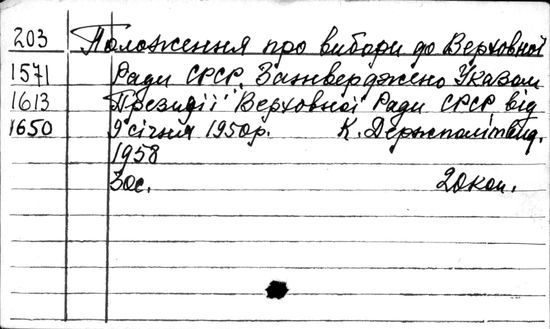 203 Положення про вибори до Верховної
1571 Ради СРСР. Затверджено Указом
1613 Президії Верховної Ради СРСР від
1650 9 січня 1950р. К. Держполітвид.
1958
30с. 20коп.